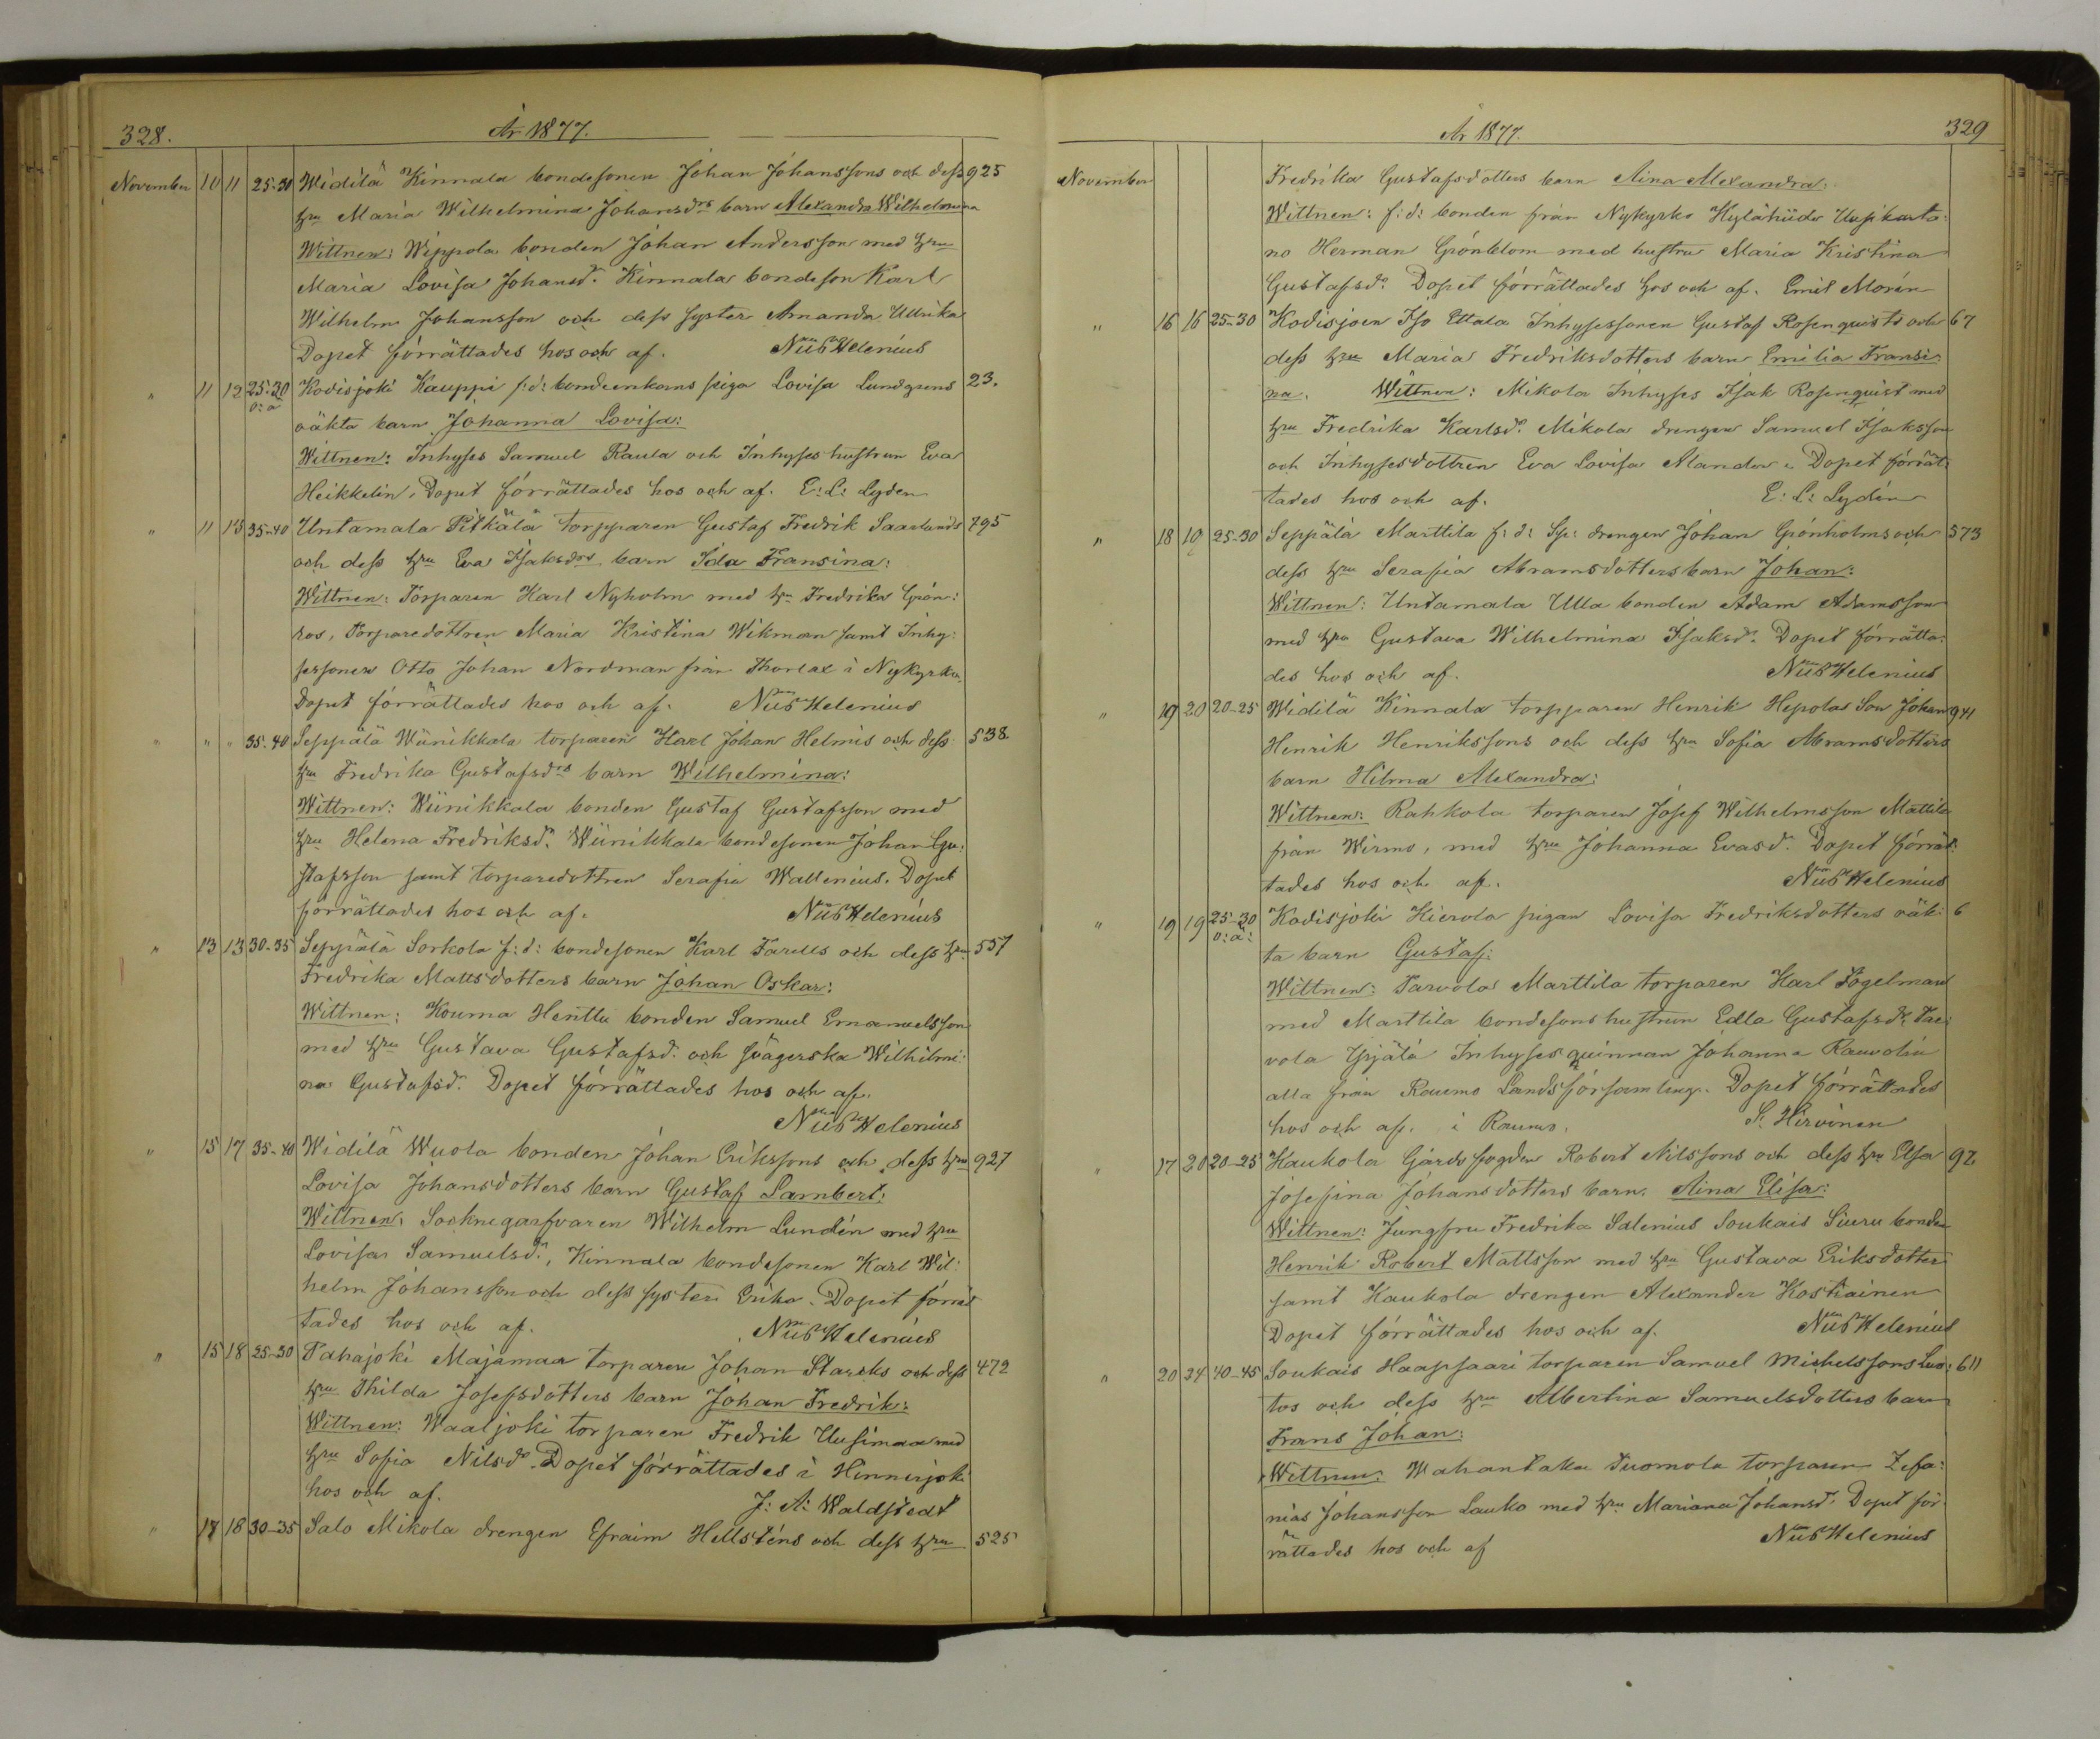 328.
År 1877.
November 10 11 25-30 Widilä Kinnala bondesonen Johan Johanssons och dess 925
hru Maria Wilhelmina Johansdrs barn Alexandra Wilhelmina
Wittnen: Wippola bonden Johan Andersson med hru
Maria Lovisa Johansdr. Kinnala bondeson Karl
Wilhelm Johansson och dess syster Amanda Ulrika
Dopet förrättades hos och af. Nils Helenius
" 11 12 25-30 Kodisjoki Kauppi f:d: bondeenkans piga Lovisa Lundgrens 23.
o:ä oäkta barn Johanna Lovisa:
Wittnen: Inhyses Samuel Raula och Inhyses hustrun Eva
Heikkelin. Dopet förrättades hos och af. E: L: Lydén
" 11 13 35-40 Untamala Pitkälä torpparen Gustaf Fredrik Saarlunds 795
och dess hru Eva Isaksdrs barn Ida Fransina:
Wittnen: Torparen Karl Nyholm med hru Fredrika Grön:
ros, Torparedottren Maria Kristina Wikman samt Inhy:
sessonen Otto Johan Nordman från Thorlax i Nykyrka,
Dopet förrättades hos och af. Nils Helenius
" " " 35-40 Seppälä Wiinikkala torparen Karl Johan Helmis och dess 538
hru Fredrika Gustafsdrs barn Wilhelmina:
Wittnen: Wiinikkala bonden Gustaf Gustafsson med
hru Helena Fredriksdr. Wiinikkala bondesonen Johan Gu:
stafsson samt torparedottren Serafia Wallenius. Dopet
förrättades hos och af. Nils Helenius
" 13 13 30-35 Seppälä Sorkola f:d: bondesonen Karl Farells och dess hru 557
Fredrika Mattsdotters barn Johan Oskar:
Wittnen: Kouma Henttu bonden Samuel Emanuelsson
med hru Gustava Gustafsdr. och svägerska Wilhelmi:
na Gustafsdr. Dopet förrättades hos och af.
Nils Helenius
" 15 17 35-40 Widilä Wuola bonden Johan Erikssons och dess hru 927
Lovisa Johansdotters barn Gustaf Lambert:
Wittnen: Socknegarfvaren Wilhelm Lundén med hru
Lovisa Samuelsdr., Kinnala bondesonen Karl Wil:
helm Johansson och dess syster Erika. Dopet förrät
tades hos och af. Nils Helenius
" 15 18 25-30 Pahajoki Majamaa torparen Johan Starcks och dess 472
hru Thilda Josefsdotters barn Johan Fredrik:
Wittnen: Waaljoki torparen Fredrik Uusimaa med
hru Sofia Nilsdr. Dopet förrättades i Hinnerjoki
hos och af. J: A: Waldstedt
" 17 18 30-35 Salo Mikola drengen Efraim Hellsténs och dess hru 525
År 1877.
329
November Fredrika Gustafsdotters barn Aina Alexandra:
Wittnen: f:d: bonden från Nykyrko Kylähiide Uusikarta:
no Herman Grönblom med hustru Maria Kristina
Gustafsdr. Dopet förrättades hos och af. Emil Morén
" 16 16 25-30 Kodisjoen Iso Ettala Inhysessonen Gustaf Rosenquists och 67
dess hru Maria Fredriksdotters barn Emilia Fransi:
na. Wittnen: Mikola Inhyses Isak Rosenquist med
hru Fredrika Karlsdr. Mikola drengen Samuel Isaksson
och Inhysesdottren Eva Lovisa Alander. Dopet förrät:
tades hos och af. E: L: Lydén
" 18 19 25-30 Seppälä Marttila f:d: Sp: drengen Johan Grönholms och 573
dess hru Serafia Abramsdotters barn Johan:
Wittnen: Untamala Ulla bonden Adam Adamsson
med hru Gustava Wilhelmina Isaksdr. Dopet förrätta:
des hos och af. Nils Helenius
" 19 20 20-25 Widilä Kinnala torpparen Henrik Hepolas Son Johan 941
Henrik Henrikssons och dess hru Sofia Abramsdotters
barn Hilma Alexandra:
Wittnen: Rahkola torparen Josef Wilhelmsson Mattila
från Wirmo, med hru Johanna Evasdr. Dopet förrät:
tades hos och af. Nils Helenius
" 19 19 25-30 Kodisjoki Hierola pigan Lovisa Fredriksdotters oäk: 6
o:ä: ta barn Gustaf:
Wittnen: Tarvola Marttila torparen Karl Fogelman
med Marttila bondesons hustrun Edla Gustafsdr. Tar:
vola Yrjälä Inhyses quinnan Johanna Rauvolin
alla från Raumo Landsförsamling. Dopet förrättades
hos och af. i Raumo. S: Hirvinen
" 17 20 20-25 Kaukola Gårdsfogden Robert Nilssons och dess hru Elsa 92
Josefina Johansdotters barn. Aina Elisa:
Wittnen: Jungfru Fredrika Salenius Soukais Siuru bonden
Henrik Robert Mattsson med hru Gustava Eriksdotter
samt Kaukola drengen Alexander Kostiainen
Dopet förrättades hos och af. Nils Helenius
" 20 24 40-45 Soukais Haapsaari torparen Samuel Michelssons Luo: 611
tos och dess hru Albertina Samuelsdotters barn
Frans Johan:
Wittnen: Wahantaka Tuomola torparen Zefa:
nias Johansson Lauko med hru Mariana Johansdr. Dopet för
rättades hos och af Nils Helenius